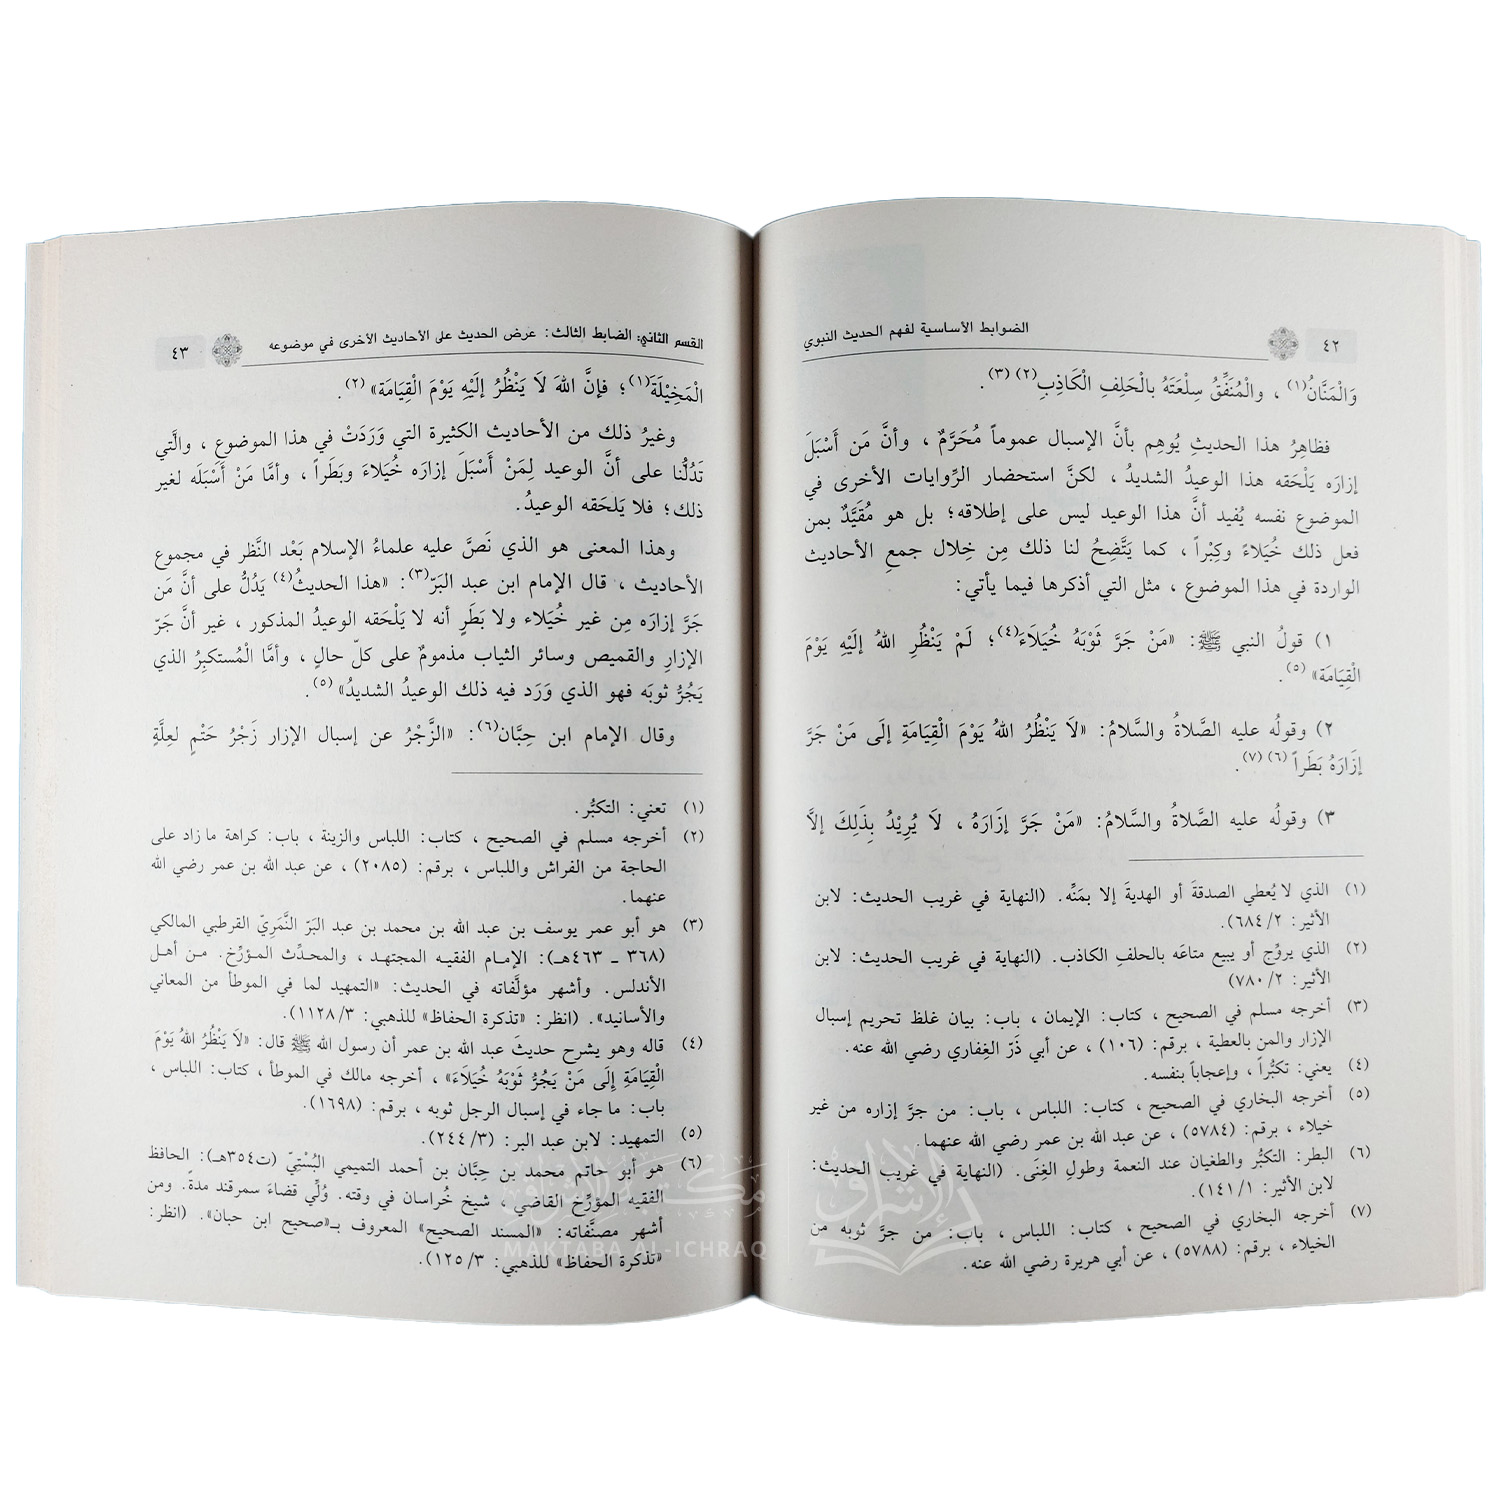 ٤٢
الضوابط الأساسية لفهم الحديث النبوي
وَالْمَنَّانُ(١) ، والْمُنَفِّقُ سِلْعَتَهُ بالْحَلِفِ الْكَاذِبِ(٢) (٣).
فظاهِرُ هذا الحديثِ يُوهِم بأنَّ الإسبال عموماً مُحَرَّمٌ ، وأنَّ مَن أَسْبَلَ
إزارَه يَلْحَقه هذا الوعيدُ الشديدُ ، لكنَّ استحضار الرِّوايات الأخرى في
الموضوع نفسه يُفيد أنَّ هذا الوعيد ليس على إطلاقه؛ بل هو مُقَيَّدٌ بمن
فعل ذلك خُيَلاءً وكِبْراً ، كما يَتَّضِحُ لنا ذلك مِن خِلال جمعِ الأحاديث
الواردة في هذا الموضوع ، مثل التي أذكرها فيما يأتي:
١) قولُ النبي ﷺ: «مَنْ جَرَّ ثَوْبَهُ خُيَلَاءَ(٤)؛ لَمْ يَنْظُرِ اللهُ إلَيْهِ يَوْمَ
الْقِيَامَة»(٥).
٢) وقولُه عليه الصَّلاةُ والسَّلامُ: «لاَ يَنْظُرُ اللهُ يَوْمَ الْقِيَامَةِ إلَى مَنْ جَرَّ
إزَارَهُ بَطَراً(٦) (٧).
٣) وقولُه عليه الصَّلاةُ والسَّلامُ: «مَنْ جَرَّ إزَارَهُ ، لَا يُرِيْدُ بِذَلِكَ إلاَّ
(١) الذي لا يُعطي الصدقةَ أو الهديةَ إلا بمَنِّه. (النهاية في غريب الحديث: لابن
الأثير: ٢/ ٦٨٤).
(٢) الذي يروِّج أو يبيع متاعَه بالحلفِ الكاذب. (النهاية في غريب الحديث: لابن
الأثير: ٢/ ٧٨٠)
(٣) أخرجه مسلم في الصحيح ، كتاب: الإيمان ، باب: بيان غلظ تحريم إسبال
الإزار والمن بالعطية ، برقم: (١٠٦) ، عن أبي ذَرّ الغِفاري رضي الله عنه.
(٤) يعني: تكبُّراً ، وإعجاباً بنفسه.
(٥) أخرجه البخاري في الصحيح ، كتاب: اللباس ، باب: من جرَّ إزاره من غير
خيلاء ، برقم: (٥٧٨٤) ، عن عبد الله بن عمر رضي الله عنهما.
(٦) البطر: التكبُّر والطغيان عند النعمة وطولِ الغِنَى. (النهاية في غريب الحديث:
لابن الأثير: ١/ ١٤١).
(٧) أخرجه البخاري في الصحيح ، كتاب: اللباس ، باب: من جرَّ ثوبه من
الخيلاء ، برقم: (٥٧٨٨) ، عن أبي هريرة رضي الله عنه.
القسم الثاني: الضابط الثالث: عرض الحديث على الأحاديث الأخرى في موضوعه
٤٣
الْمَخِيْلَةَ(١)؛ فإنَّ اللهَ لَا يَنْظُرُ إلَيْهِ يَوْمَ الْقِيَامَة»(٢).
وغيرُ ذلك من الأحاديث الكثيرة التي وَرَدَتْ في هذا الموضوع ، والَّتي
تَدُلُّنا على أنَّ الوعيد لِمَنْ أَسْبَلَ إزارَه خُيَلاءَ وبَطَراً ، وأمَّا مَنْ أَسْبَلَه لغير
ذلك؛ فلا يَلحَقه الوعيدُ.
وهذا المعنى هو الذي نَصَّ عليه علماءُ الإسلام بَعْد النَّظر في مجموع
الأحاديث ، قال الإمام ابن عبد البَرّ(٣): «هذا الحديثُ(٤) يَدُلُّ على أنَّ مَن
جَرَّ إزارَه مِن غير خُيَلاء ولا بَطَرٍ أنه لا يَلْحَقه الوعيدُ المذكور ، غير أنَّ جَرّ
الإزارِ والقميص وسائر الثياب مذمومٌ على كلّ حالٍ ، وأمَّا الْمُستكبِرُ الذي
يَجُرُّ ثوبَه فهو الذي وَرَد فيه ذلك الوعيدُ الشديدُ»(٥).
وقال الإمام ابن حِبَّان(٦): «الزَّجْرُ عن إسبال الإزار زَجْرُ حَتْمٍ لعِلَّةٍ
(١) تعني: التكبُّر.
(٢) أخرجه مسلم في الصحيح ، كتاب: اللباس والزينة ، باب: كراهة ما زاد على
الحاجة من الفراش واللباس ، برقم: (٢٠٨٥) ، عن عبد الله بن عمر رضي الله
عنهما.
(٣) هو أبو عمر يوسف بن عبد الله بن محمد بن عبد البَرّ النَّمَرِيّ القرطبي المالكي
(٣٦٨ ـ ٤٦٣هـ): الإمام الفقيه المجتهد ، والمحدِّث المؤرِّخ. من أهل
الأندلس. وأشهر مؤلَّفاته في الحديث: «التمهيد لما في الموطأ من المعاني
والأسانيد». (انظر: «تذكرة الحفاظ» للذهبي: ٣/ ١١٢٨).
(٤) قاله وهو يشرح حديثَ عبد الله بن عمر أن رسول الله ﷺ قال: «لاَ يَنْظُرُ اللهُ يَوْمَ
الْقِيَامَةِ إِلَى مَنْ يَجُرُّ ثَوْبَهُ خُيَلَاءَ» ، أخرجه مالك في الموطأ ، كتاب: اللباس ،
باب: ما جاء في إسبال الرجل ثوبه ، برقم: (١٦٩٨).
(٥) التمهيد: لابن عبد البر: (٣/ ٢٤٤).
(٦) هو أبو حاتم محمد بن حِبَّان بن أحمد التميمي البُسْتِيّ (ت٣٥٤هـ): الحافظ
الفقيه المؤرِّخ القاضي ، شيخ خُراسان في وقته. وُلِّي قضاءَ سمرقند مدةً. ومن
أشهر مصنَّفاته: «المسند الصحيح» المعروف بـ«صحيح ابن حبان». (انظر:
«تذكرة الحفاظ» للذهبي: ٣/ ١٢٥).
مكتبة الإشراق
MAKTABA AL-ICHRAQ
دار الإشراق